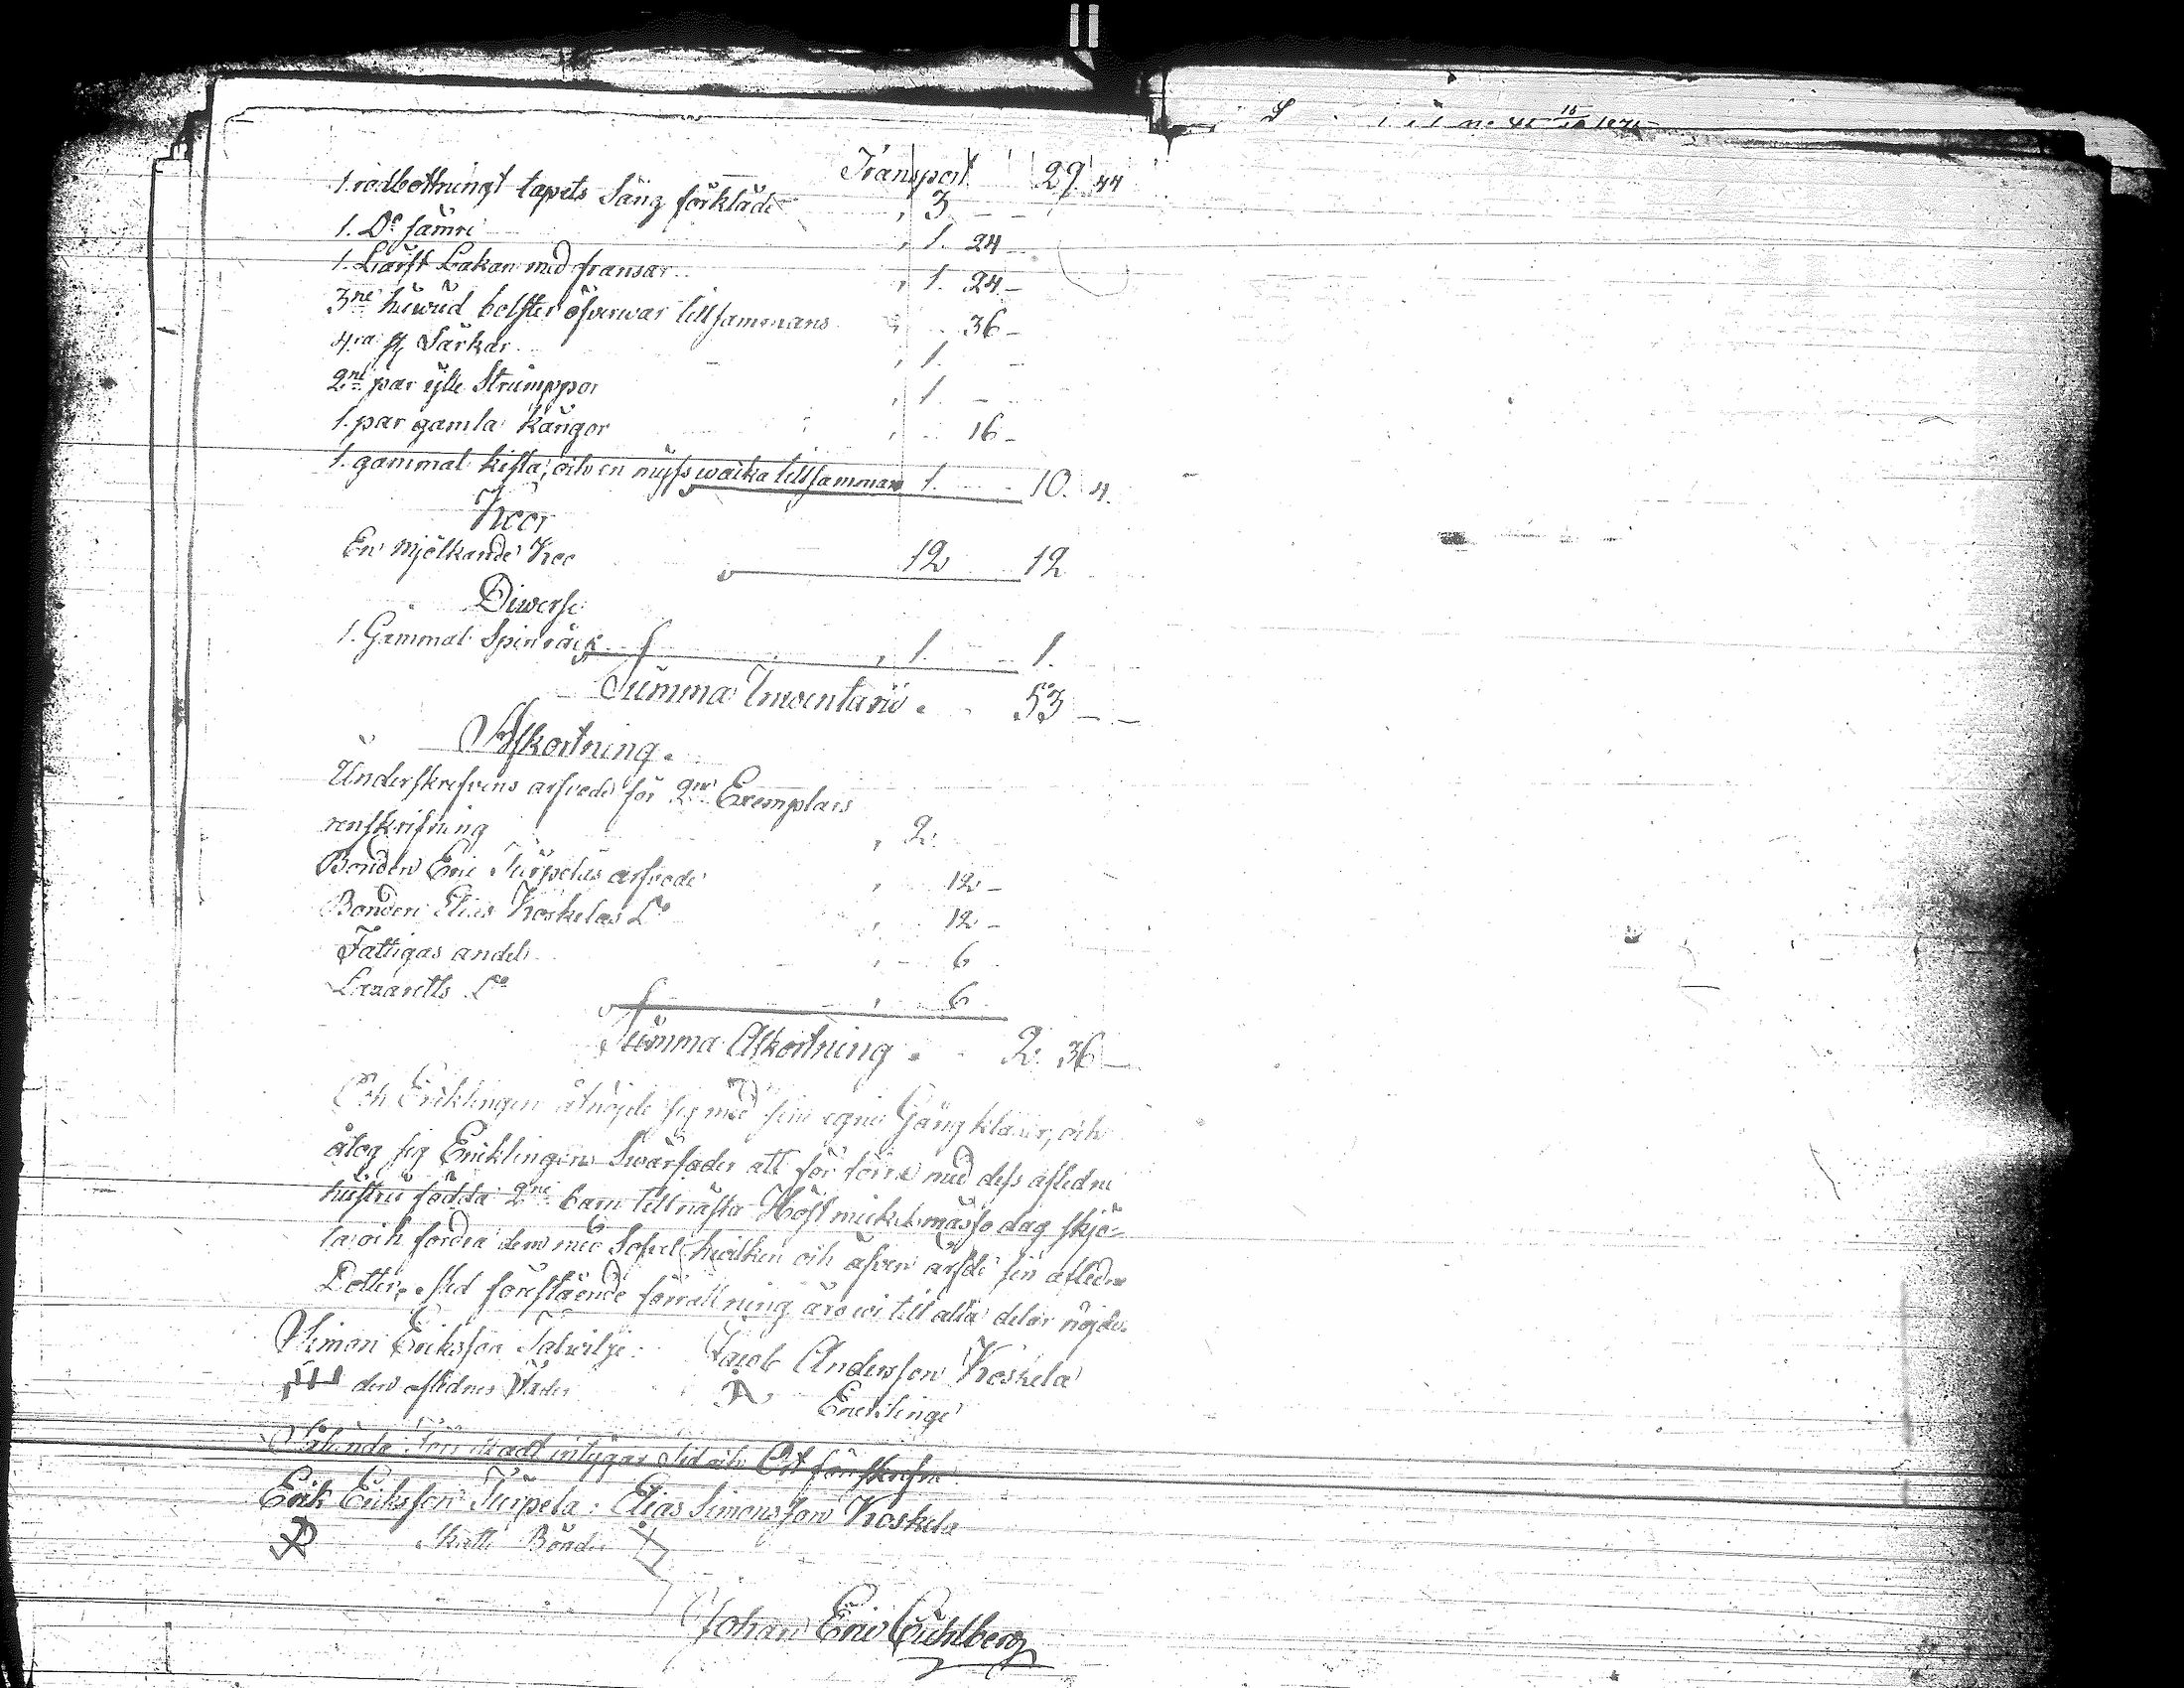 Transport 29. 44
1. rödbottningt tapets Säng förkläde , 3 – –
1. Do sämre , 1. 24
1. Lärft Lakan med fransar , 1. 24 –
3ne hüwud bolster öfverwar tillsammans , 36 –
4ra st. Särkar , 1. –
2ne par ylle Strümppor , 1. –
1. par gamla kängor , 16 –
1. gammal kista, och en tillsammans 1. 10. 4.
Koor
En Mjölkande Koo 12 12
Diwerse
1. Gammal Spinråck , 1. 1.
Summa Inventarii . 53 – –
Afkortning.
Underskrefvens arfvode för 2ne Exemplars
renskrifning , 2.
Bonden Eric Türpelas arfvode , 12 –
Bonden Elias Koskelas Do , 12 –
Fattigas andel , 6
Lazaretts Do , 6
Summa Afkortning . 2. 36 –
Och Enklingen åtnöjde sig med sine egne Gång kläder, och
åtog sig Enklingens Swärfader att för förre med dess afledne
hüstrü födda 2ne barn till nästa Höst mickelsmässo dag skjö-
ta och fordra dem med hwilken och äfven ärfde sin afledne
Dotter. Med förestående förrättning äro wi till alla delar nöjde.
Simon Eriksson Jacob Andersson Koskela
den aflednes Fader Encklinge
intygar
Erik Eriksson Türpela: Elias Simonsson Koskela
Skatte Bönder
Johan Eric